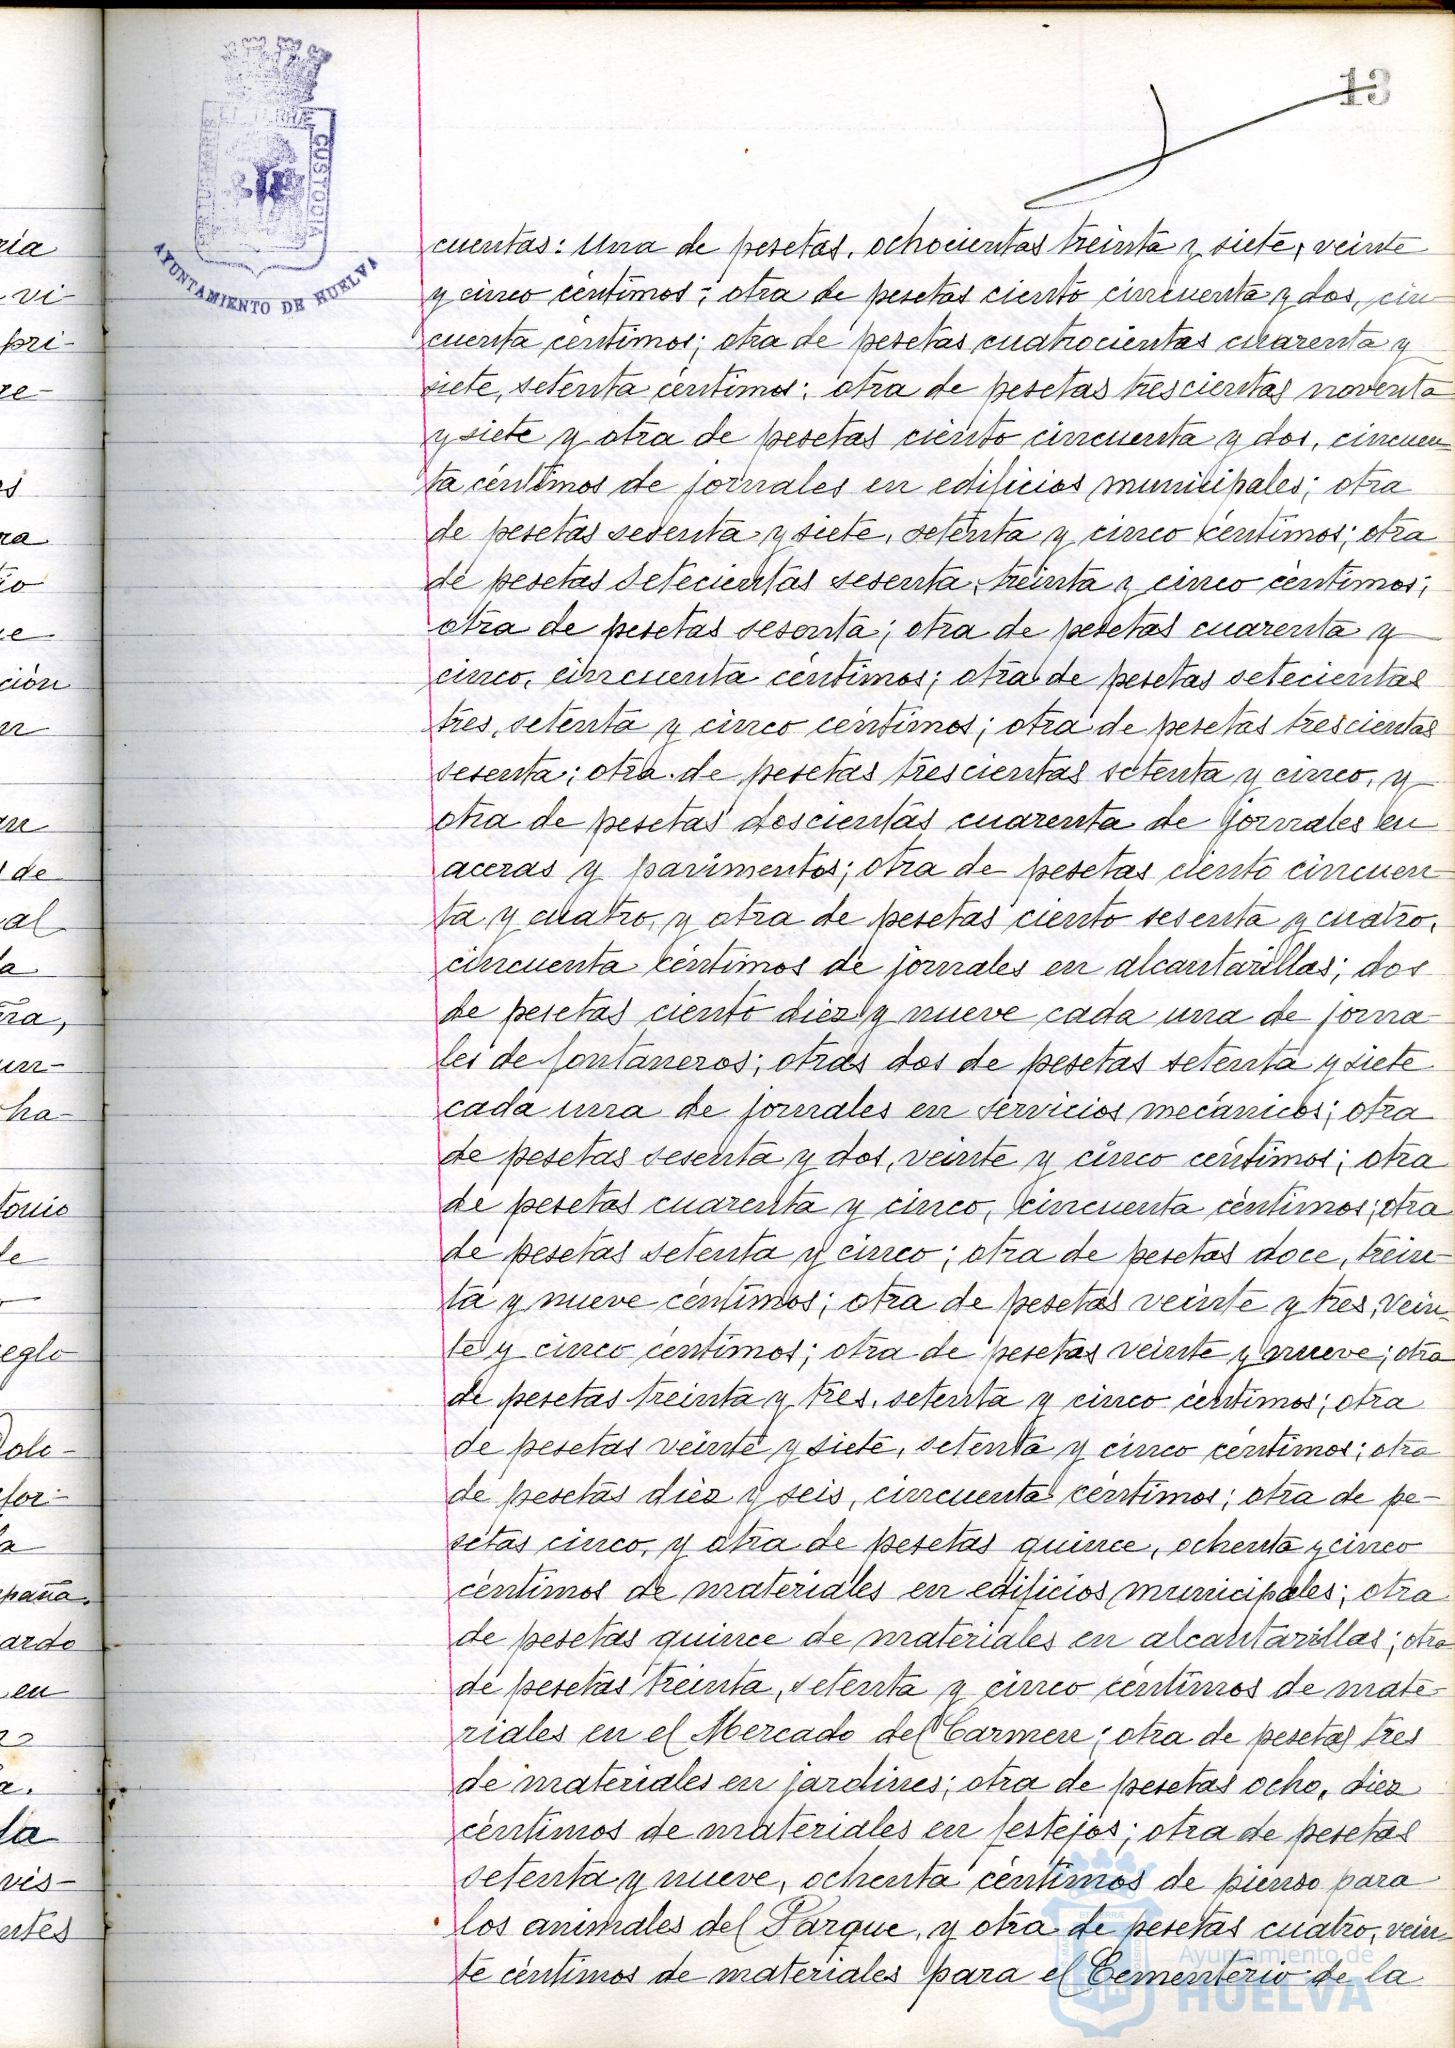 13
ET TERRÆ
CUSTODIA
AYUNTAMIENTO DE HUELVA
cuentas: Una de pesetas, ochocientas treinta y siete, veinte
y cinco céntimos; otra de pesetas ciento cincuenta y dos, cin-
cuenta céntimos; otra de pesetas cuatrocientas cuarenta y
siete, setenta céntimos; otra de pesetas trescientas noventa
y siete y otra de pesetas ciento cincuenta y dos, cincuen-
ta céntimos de jornales en edificios municipales; otra
de pesetas sesenta y siete, setenta y cinco céntimos; otra
de pesetas setecientas sesenta, treinta y cinco céntimos;
otra de pesetas sesenta; otra de pesetas cuarenta y
cinco, cincuenta céntimos; otra de pesetas setecientas
tres, setenta y cinco céntimos; otra de pesetas trescientas
sesenta; otra de pesetas trescientas setenta y cinco, y
otra de pesetas doscientas cuarenta de jornales en
aceras y pavimentos; otra de pesetas ciento cincuen-
ta y cuatro, y otra de pesetas ciento sesenta y cuatro,
cincuenta céntimos de jornales en alcantarillas; dos
de pesetas ciento diez y nueve cada una de jorna-
les de fontaneros; otras dos de pesetas setenta y siete
cada una de jornales en servicios mecánicos; otra
de pesetas sesenta y dos, veinte y cinco céntimos; otra
de pesetas cuarenta y cinco, cincuenta céntimos; otra
de pesetas setenta y cinco; otra de pesetas doce, trein-
ta y nueve céntimos; otra de pesetas veinte y tres, vein-
te y cinco céntimos; otra de pesetas veinte y nueve; otra
de pesetas treinta y tres, setenta y cinco céntimos; otra
de pesetas veinte y siete, setenta y cinco céntimos; otra
de pesetas diez y seis, cincuenta céntimos; otra de pe-
setas cinco, y otra de pesetas quince, ochenta y cinco
céntimos de materiales en edificios municipales; otra
de pesetas quince de materiales en alcantarillas; otra
de pesetas treinta, setenta y cinco céntimos de mate-
riales en el Mercado del Carmen; otra de pesetas tres
de materiales en jardines; otra de pesetas ocho, diez
céntimos de materiales en festejos; otra de pesetas
setenta y nueve, ochenta céntimos de pienso para
los animales del Parque, y otra de pesetas cuatro, vein-
te céntimos de materiales para el Cementerio de la
Ayuntamiento de
HUELVA